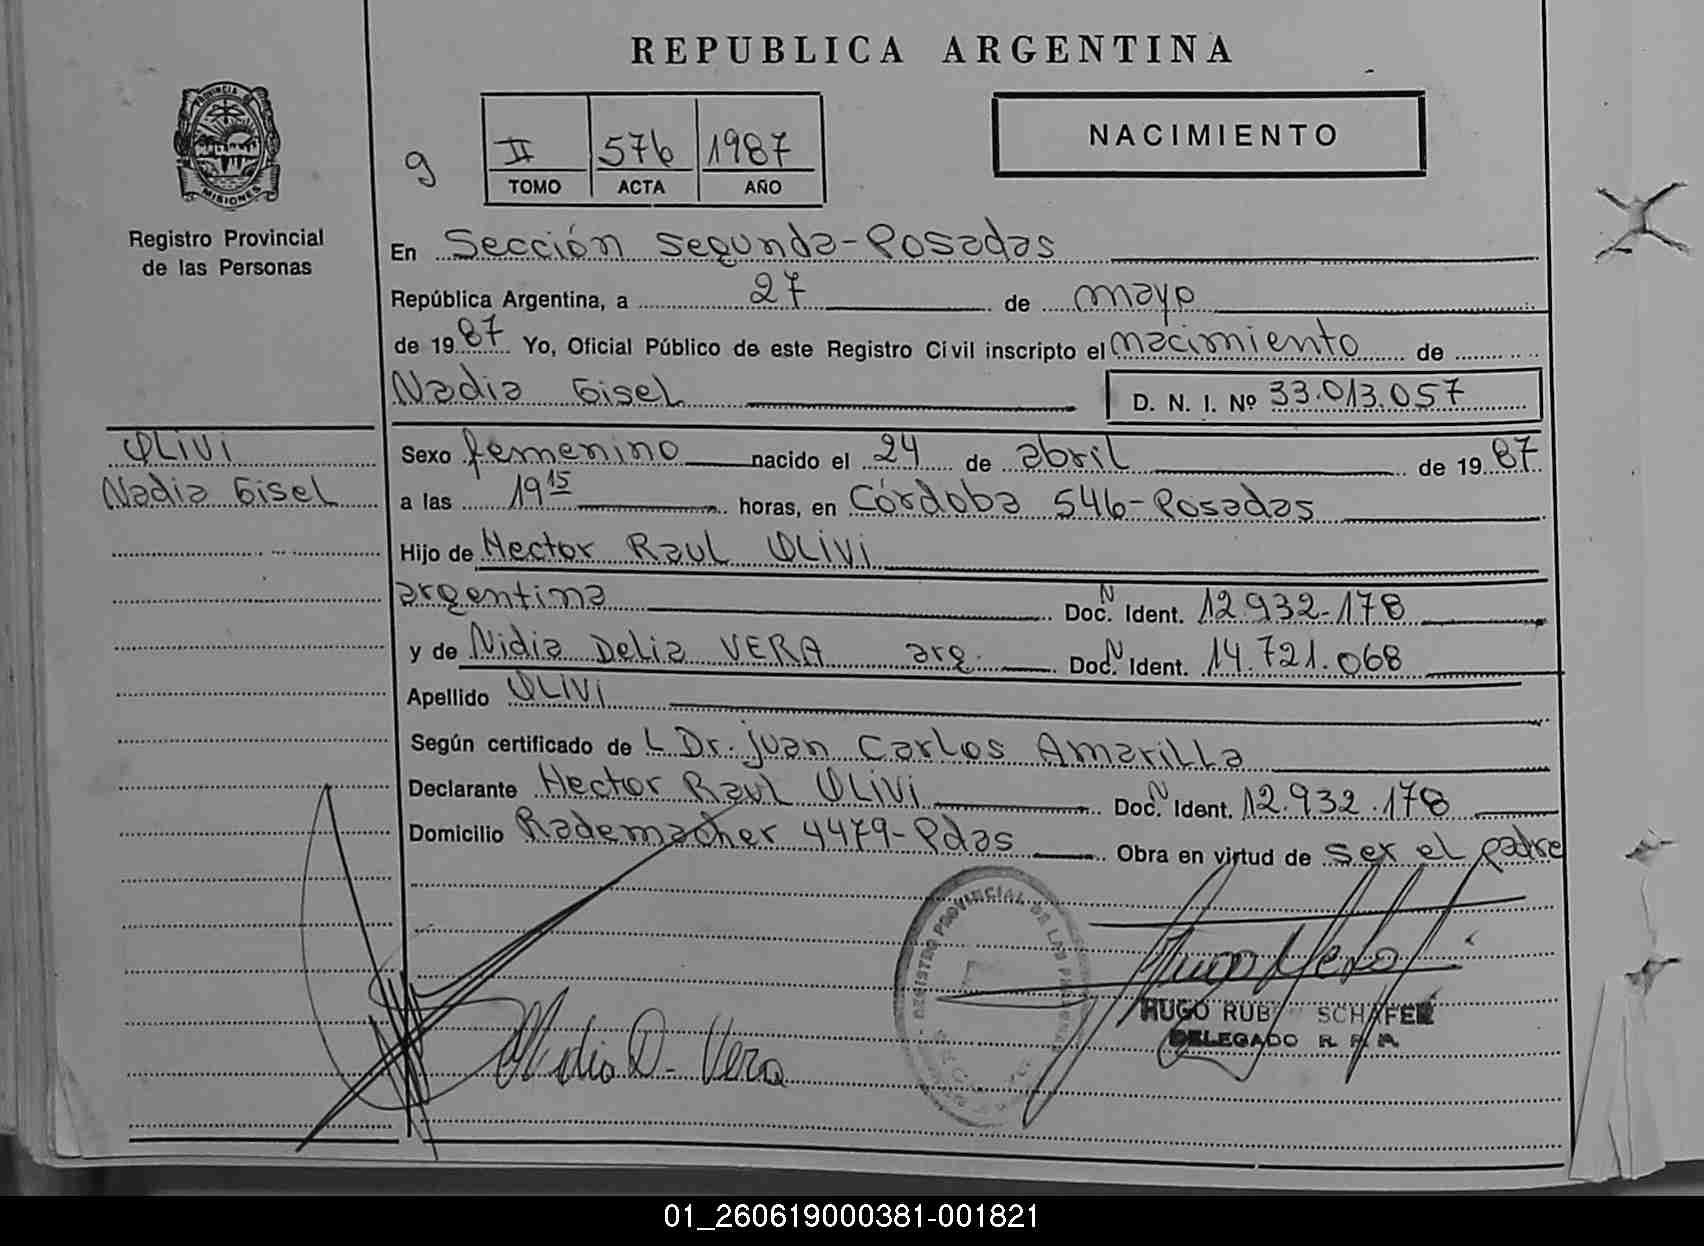 REPUBLICA ARGENTINA
PROVINCIA DE MISIONES
Registro Provincial
de las Personas
9
II 576 1987
TOMO ACTA AÑO
NACIMIENTO
En Sección Segunda-Posadas
República Argentina, a 27 de mayo
de 1987 Yo, Oficial Público de este Registro Civil inscripto el nacimiento de
Nadia Gisel D. N. I. Nº 33.013.057
OLIVI
Nadia Gisel
Sexo femenino nacido el 24 de abril de 1987
a las 19 15 horas, en Córdoba 546-Posadas
Hijo de Hector Raul OLIVI
argentina Doc. N Ident. 12.932.178
y de Nidia Delia VERA arg. Doc. N Ident. 14.721.068
Apellido OLIVI
Según certificado de L Dr. Juan Carlos Amarilla
Declarante Hector Raul OLIVI Doc. N Ident. 12.932.178
Domicilio Rademacher 4479-Pdas Obra en virtud de ser el padre
REGISTRO PROVINCIAL DE LAS PERSONAS
Nidia D. Vera
HUGO RUB SCHAFER
DELEGADO R. P. P.
01_260619000381-001821